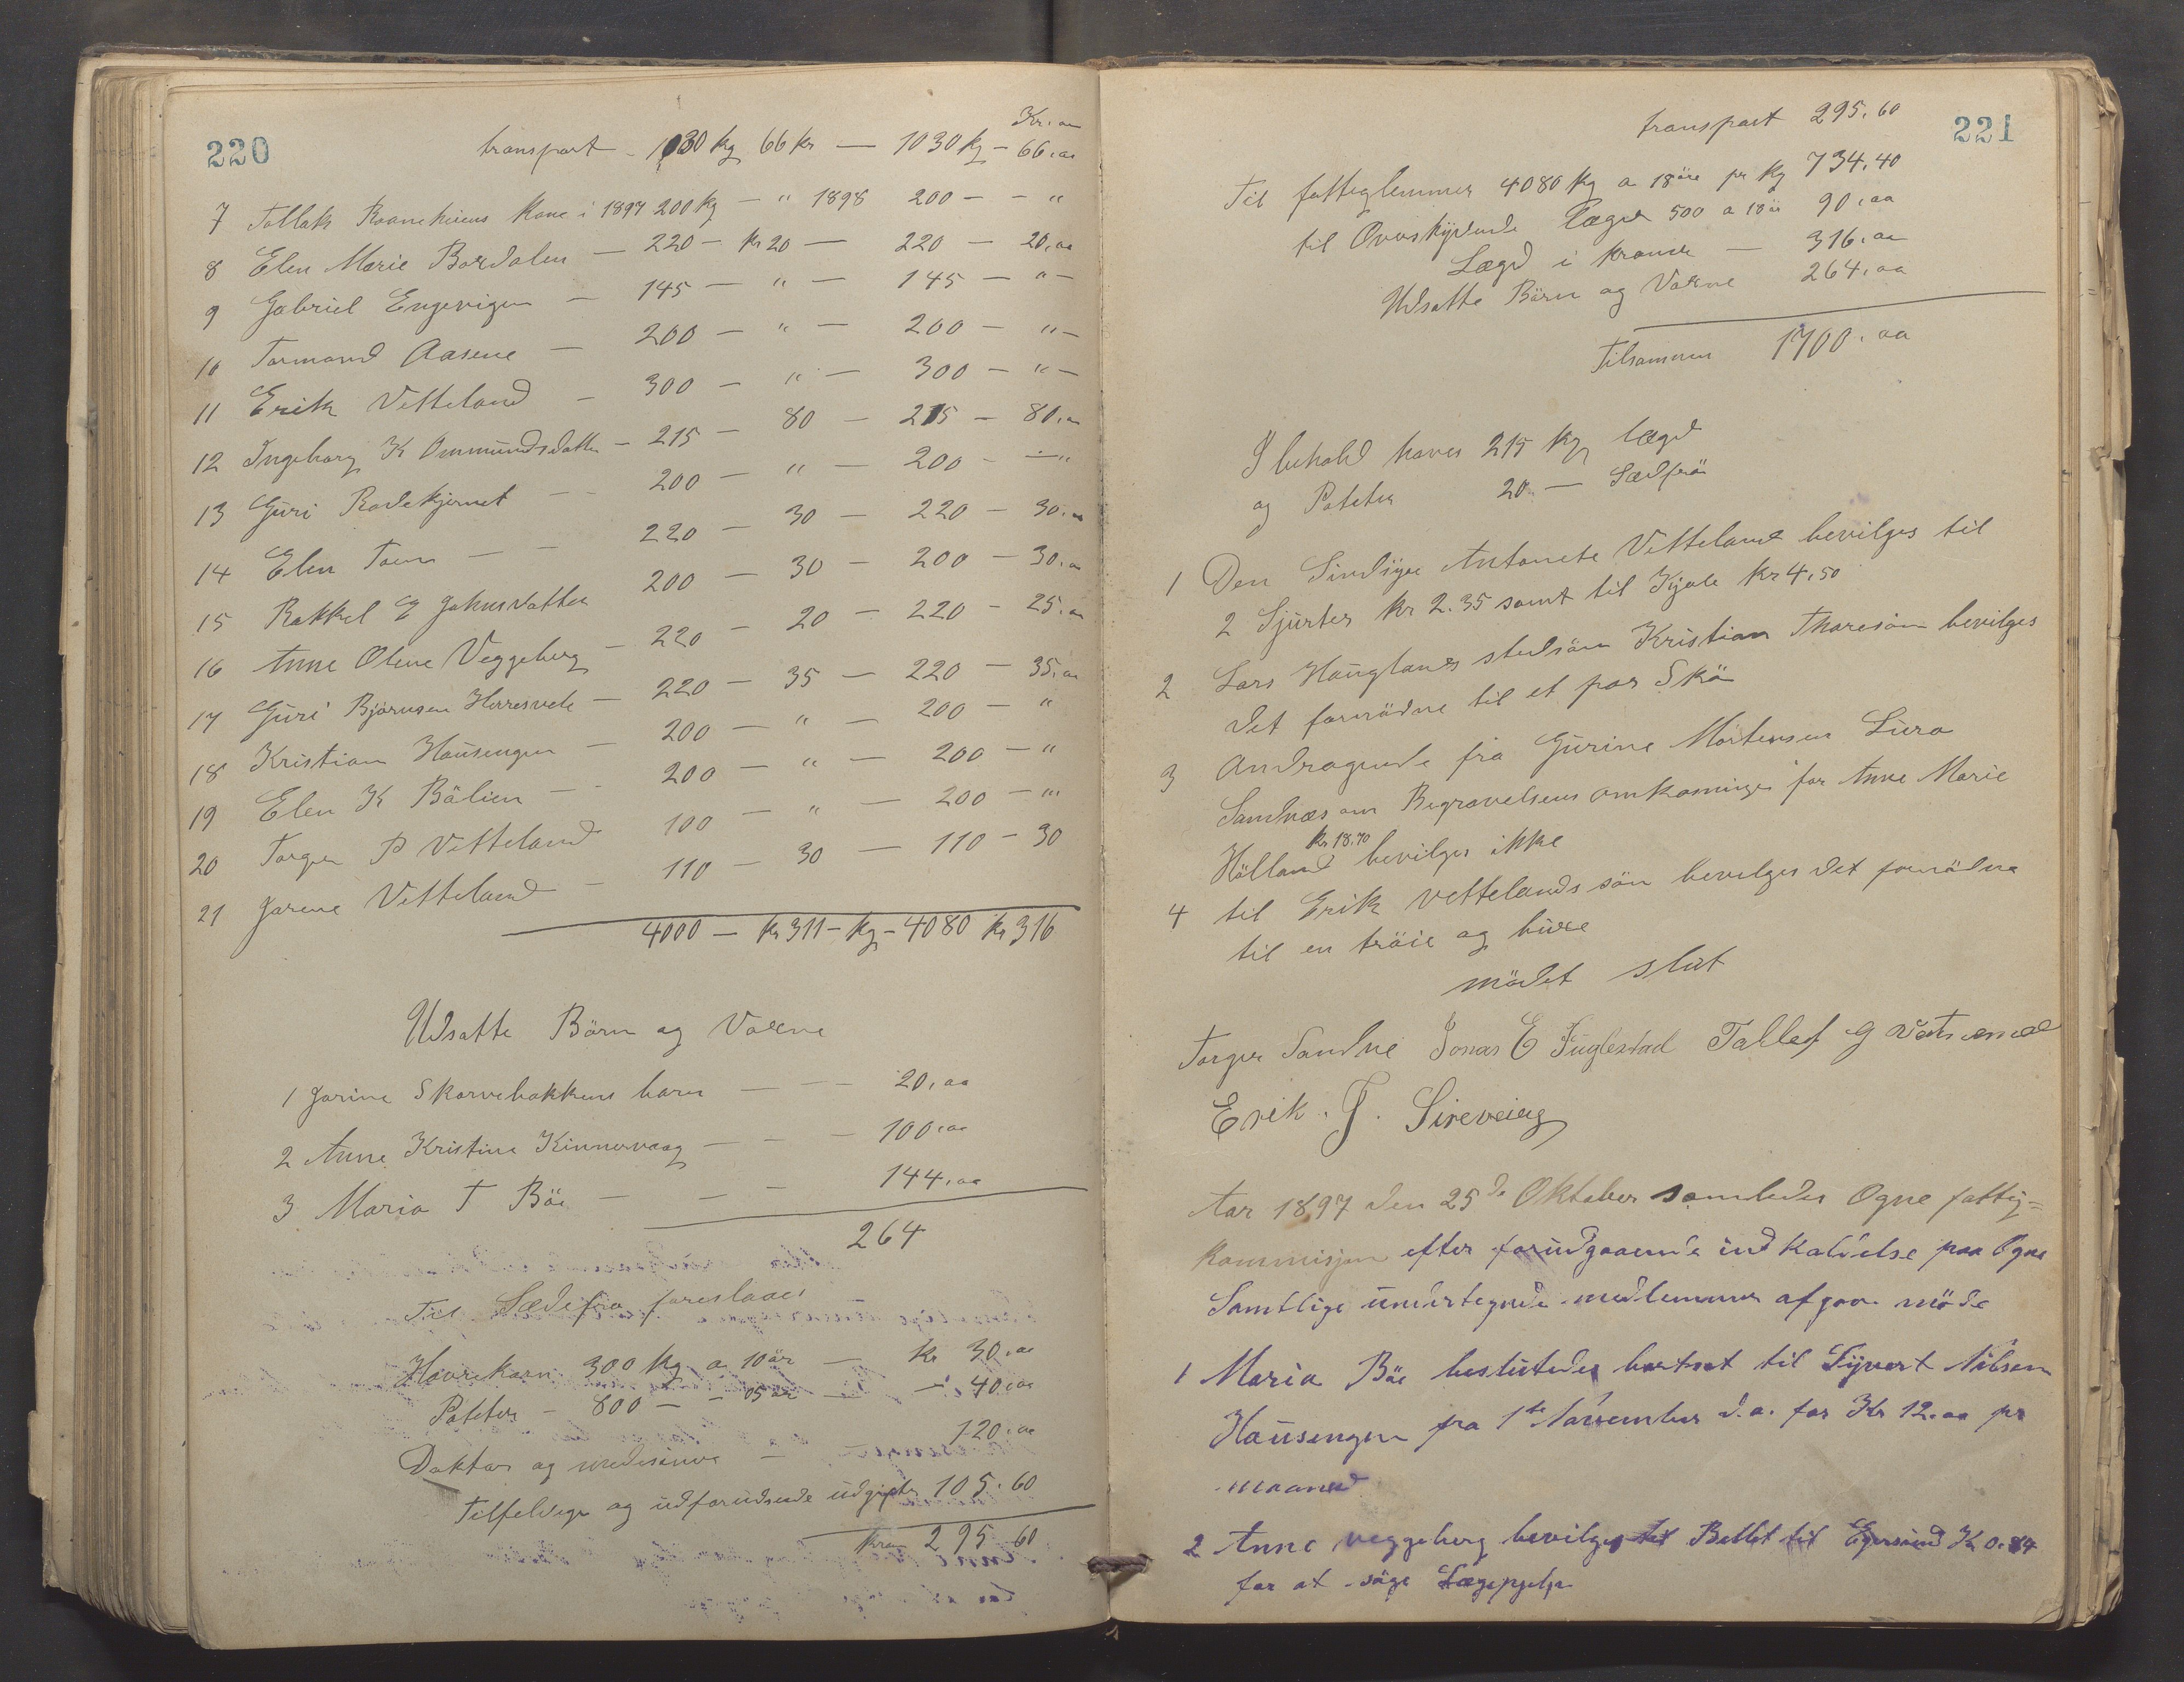 220
Kr. aa
transport - 1030 kg 66 kr — 1030 kg - 66.aa
7 Tollak Raaneheiens Kone i 1897 200 kg - " 1898 200 - - "
8 Elen Marie Bordalen — 220 - kr 20 — 220 — 20.aa
9 Gabriel Engevigen — 145 — " — 145 — " —
10 Tormand Aasene — 200 — " — 200 — " —
11 Erik Vetteland — 300 — " — 300 — " —
12 Ingeborg K Ommundsdatter — 215 — 80 — 215 — 80.aa
13 Guri Rodekjernet — 200 — " — 200 — "
14 Elen Tuen — — 220 — 30 — 220 — 30.aa
15 Rakkel E Johnsdatter 200 — 30 — 200 — 30.aa
16 Anne Olene Veggeberg — 220 — 20 — 220 — 25.aa
17 Guri Bjørnsen Herresvele — 220 — 35 — 220 — 35.aa
18 Kristian Hausengen — 200 — " — 200 — "
19 Elen K Bölien — 200 — " — 200 — "
20 Torger P Vetteland 100 — " — 200 — "
21 Jorene Vetteland — 110 — 30 — 110 — 30
4000 — kr 311 — kg - 4080 kr 316
Udsatte Börn og Voxne
1 Jorine Skorvebakkens barn — — — 20.aa
2 Anne Kristine Kinnervaag — — — 100.aa
3 Maria T Böe — — — 144.aa
264
Til Sædefrø foreslaaes
Havrekorn 300 kg a 10 ör — kr 30.aa
Poteter — 800 — - 05 ör — - 40.aa
Doktor og medesinne — 120.aa
Tilfeldige og udforudseede udgifter 105.60
kroner 295 60
221
transport 295.60
Til fattiglemmer 4080 kg a 18 öre pr kg 734.40
til Ovvskydende lægd 500 a 18 ör 90.aa
Lægd i kroner — 316.aa
Udsatte Börn og Voxne 264.aa
Tilsammen 1700.aa
I behold haves 215 kg lægd
og Poteter 20 — Sædfrö
1 Den Sindsyge Antonete Vetteland bevilges til
2 Sjurter kr 2.35 samt til Kjole kr 4.50
2 Lars Hauglands stedsön Kristian Thoresön bevilges
det fornödne til et par Skö
3 Andragende fra Gurine Mortensen Lura
Sandnæs om Begravelsens omkosninger for Anne Marie
kr 18.70
Hölland bevilges ikke
4 til Erik vettelands sön bevelges det fornödne
til en tröie og buxe
mödet slut
Torger Sandve Jonas E Fuglestad Tallef G Vatnemoe
Erik. T. Sireveiag
Aar 1897 den 25de Oktober samledes Ogne fattig=
kommisjon efter forudgaaende indkaldelse paa Ogne
Samtlige undertegnede medlemmer afgav möde
1 Maria Böe beslutedes bortsat til Sijvert Nilsen
Hausengen fra 1te November d.a. for Kr 12.aa pr
maaned
2 Anne veggeberg bevilges til Bellet til Egersund Kr 0.84
for at söge Lægehjelp